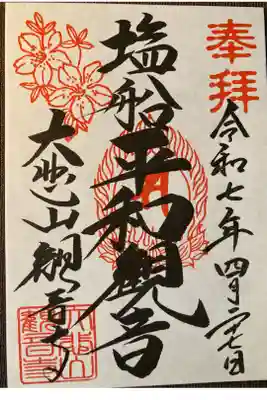 奉拝
令和七年四月二十七日
塩船平和観音
大悲山観音寺